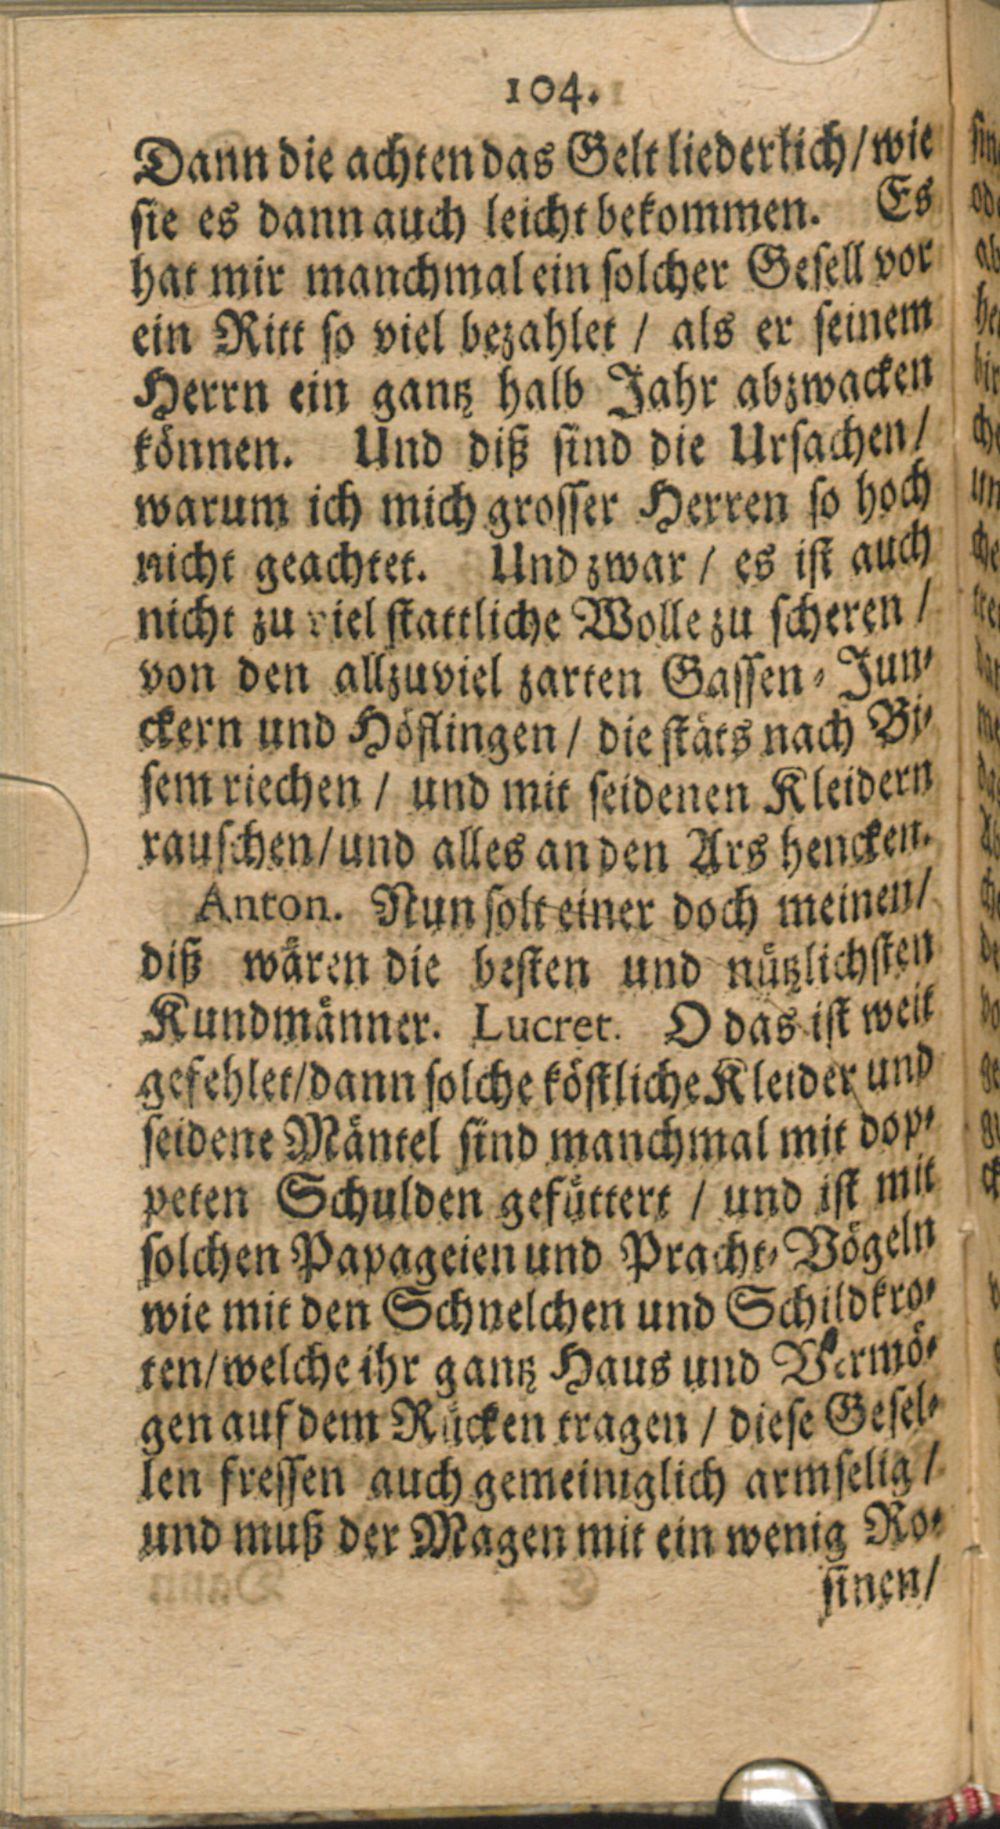 104.
Dann die achten das Gelt liederlich / wie
sie es dann auch leicht bekommen. Es
hat mir manchmal ein solcher Gesell vor
ein Ritt so viel bezahlet / als er seinem
Herrn ein gantz halb Jahr abzwacken
können. Und diß sind die Ursachen /
warum ich mich grosser Herren so hoch
nicht geachtet. Und zwar / es ist auch
nicht zu viel stattliche Wolle zu scheren /
von den allzuviel zarten Gassen-Jun-
ckern und Höflingen / die stäts nach Bi-
sem riechen / und mit seidenen Kleidern
rauschen / und alles an den Ars hencken.
Anton. Nun solt einer doch meinen /
diß wären die besten und nützlichsten
Kundmänner. Lucret. O das ist weit
gefehlet / dann solche köstliche Kleider und
seidene Mäntel sind manchmal mit dop-
peten Schulden gefüttert / und ist mit
solchen Papageien und Pracht-Vögeln
wie mit den Schnelchen und Schildkro-
ten / welche ihr gantz Haus und Vermö-
gen auf dem Rücken tragen / diese Gesel-
len fressen auch gemeiniglich armselig /
und muß der Magen mit ein wenig Ro-
sinen /